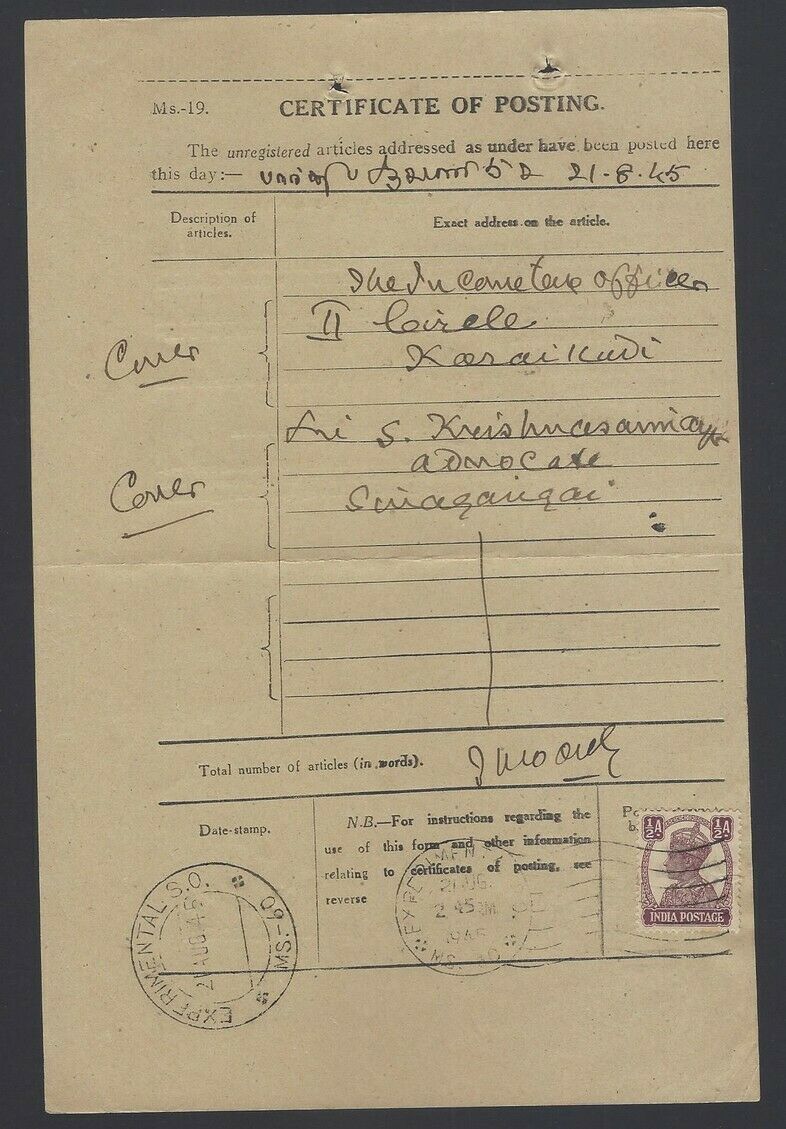 Ms.-19. CERTIFICATE OF POSTING.
The unregistered articles addressed as under have been posted here
this day:— 21-8-45
Description of articles.
Exact address on the article.
Cover
The Incometax Officer
II Circle
Karaikudi
Cover
Sri S. Krishnasamiayyar
Advocate
Sivagangai
Total number of articles (in words). Two only
Date-stamp.
N.B.—For instructions regarding the
use of this form and other information
relating to certificates of posting, see
reverse
½A ½A
INDIA POSTAGE
EXPERIMENTAL S.O.
21 AUG 45
MS.-60
21 AUG
2 45 PM
1945